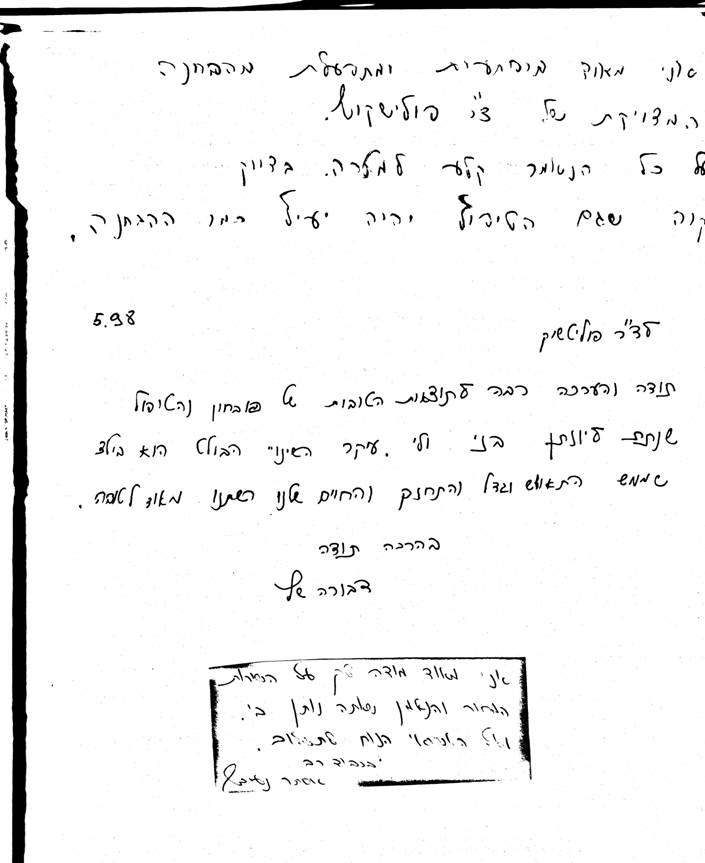 אני מאוד מופתעת ומתפעלת מהבחנה
המדויקת של
על כל הנאמר קלע למטרה. בדיוק
קוה שגם הטיפול יהיה יעיל כמו ההבחנה.
5.98
לד"ר פוליטשוק
תודה והערכה רבה לתוצאות הטובות של האבחון והטיפול
שנתת ליונתן בני ולי. עיקר השינוי הבולט הוא בילד
שממש התאושש וגדל והתחזק והחיים שלנו השתנו מאוד לטובה.
בהרבה תודה
דבורה
אני מאוד מודה לך על
החור והנשמן שאתה נותן בי.
ועל הנוח
בכבוד רב
אסתר